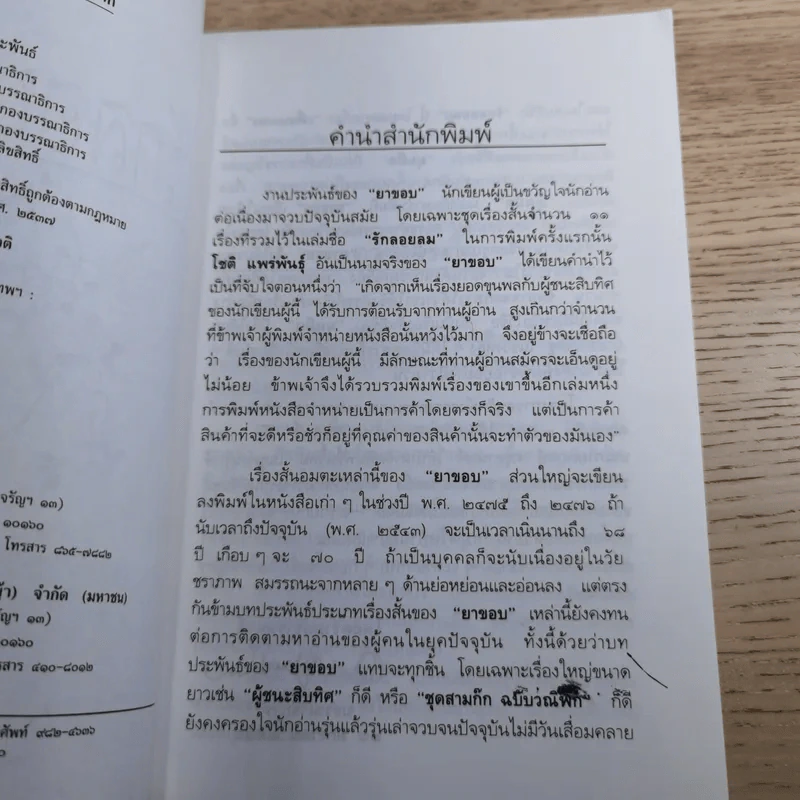 ะพันธ์
าธิการ
บรรณาธิการ
กองบรรณาธิการ
กองบรรณาธิการ
ลิขสิทธิ์
สิทธิ์ถูกต้องตามกฎหมาย
ศ. ๒๕๓๗
ติ
ทพฯ :
จรัญฯ ๑๓)
๑๐๑๖๐
โทรสาร ๘๖๕-๗๘๘๒
จำกัด (มหาชน)
รัญฯ ๑๓)
๐๑๖๐
สาร ๔๑๐-๘๐๑๒
ศัพท์ ๙๘๒-๔๖๓๖
คำนำสำนักพิมพ์
งานประพันธ์ของ “ยาขอบ” นักเขียนผู้เป็นขวัญใจนักอ่าน
ต่อเนื่องมาจวบปัจจุบันสมัย โดยเฉพาะชุดเรื่องสั้นจำนวน ๑๑
เรื่องที่รวมไว้ในเล่มชื่อ “รักลอยลม” ในการพิมพ์ครั้งแรกนั้น
โชติ แพร่พันธุ์ อันเป็นนามจริงของ “ยาขอบ” ได้เขียนคำนำไว้
เป็นที่จับใจตอนหนึ่งว่า “เกิดจากเห็นเรื่องยอดขุนพลกับผู้ชนะสิบทิศ
ของนักเขียนผู้นี้ ได้รับการต้อนรับจากท่านผู้อ่าน สูงเกินกว่าจำนวน
ที่ข้าพเจ้าผู้พิมพ์จำหน่ายหนังสือนั้นหวังไว้มาก จึงอยู่ข้างจะเชื่อถือ
ว่า เรื่องของนักเขียนผู้นี้ มีลักษณะที่ท่านผู้อ่านสมัครจะเอ็นดูอยู่
ไม่น้อย ข้าพเจ้าจึงได้รวบรวมพิมพ์เรื่องของเขาขึ้นอีกเล่มหนึ่ง
การพิมพ์หนังสือจำหน่ายเป็นการค้าโดยตรงก็จริง แต่เป็นการค้า
สินค้าที่จะดีหรือชั่วก็อยู่ที่คุณค่าของสินค้านั้นจะทำตัวของมันเอง”
เรื่องสั้นอมตะเหล่านี้ของ “ยาขอบ” ส่วนใหญ่จะเขียน
ลงพิมพ์ในหนังสือเก่า ๆ ในช่วงปี พ.ศ. ๒๔๗๕ ถึง ๒๔๗๖ ถ้า
นับเวลาถึงปัจจุบัน (พ.ศ. ๒๕๔๓) จะเป็นเวลาเนิ่นนานถึง ๖๘
ปี เกือบ ๆ จะ ๗๐ ปี ถ้าเป็นบุคคลก็จะนับเนื่องอยู่ในวัย
ชราภาพ สมรรถนะจากหลาย ๆ ด้านย่อหย่อนและอ่อนลง แต่ตรง
กันข้ามบทประพันธ์ประเภทเรื่องสั้นของ “ยาขอบ” เหล่านี้ยังคงทน
ต่อการติดตามหาอ่านของผู้คนในยุคปัจจุบัน ทั้งนี้ด้วยว่าบท
ประพันธ์ของ “ยาขอบ” แทบจะทุกชิ้น โดยเฉพาะเรื่องใหญ่ขนาด
ยาวเช่น “ผู้ชนะสิบทิศ” ก็ดี หรือ “ชุดสามก๊ก ฉบับวณิพก” ก็ดี
ยังคงครองใจนักอ่านรุ่นแล้วรุ่นเล่าจวบจนปัจจุบันไม่มีวันเสื่อมคลาย